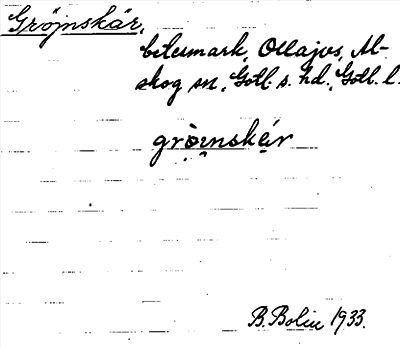 Gröjnskär,
betesmark, Ollajvs, Al-
skog sn, Gotl. s. hd., Gotl. l.
gröi̯nskęr
B. Bolin 1933.